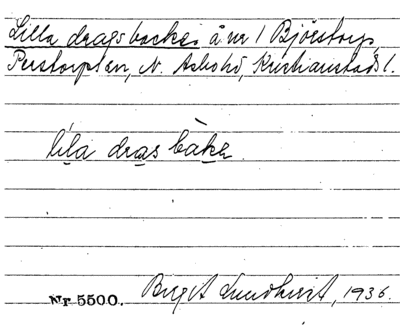 Lilla drags backar å nr 1 Björstorp,
Perstorps sn, N. Åsbo hd, Kristianstads l.
líla dras bàkar
Nr 5500. Birgit Lundkvist, 1936.